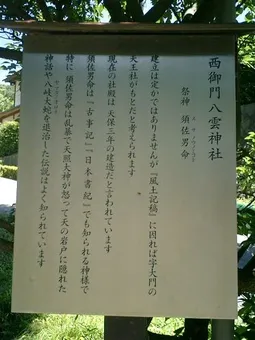 西御門八雲神社
祭神 須佐男命
すさのうのみこと
建立は定かではありませんが『風土記稿』に因れば字大門の
天王社がもとだと考えられます
現在の社殿は 天保三年の建造だと言われています
須佐男命は『古事記』『日本書紀』でも知られる神様で
特に 須佐男命は乱暴で天照大神が怒って天の岩戸に隠れた
神話や八岐大蛇を退治した伝説はよく知られています